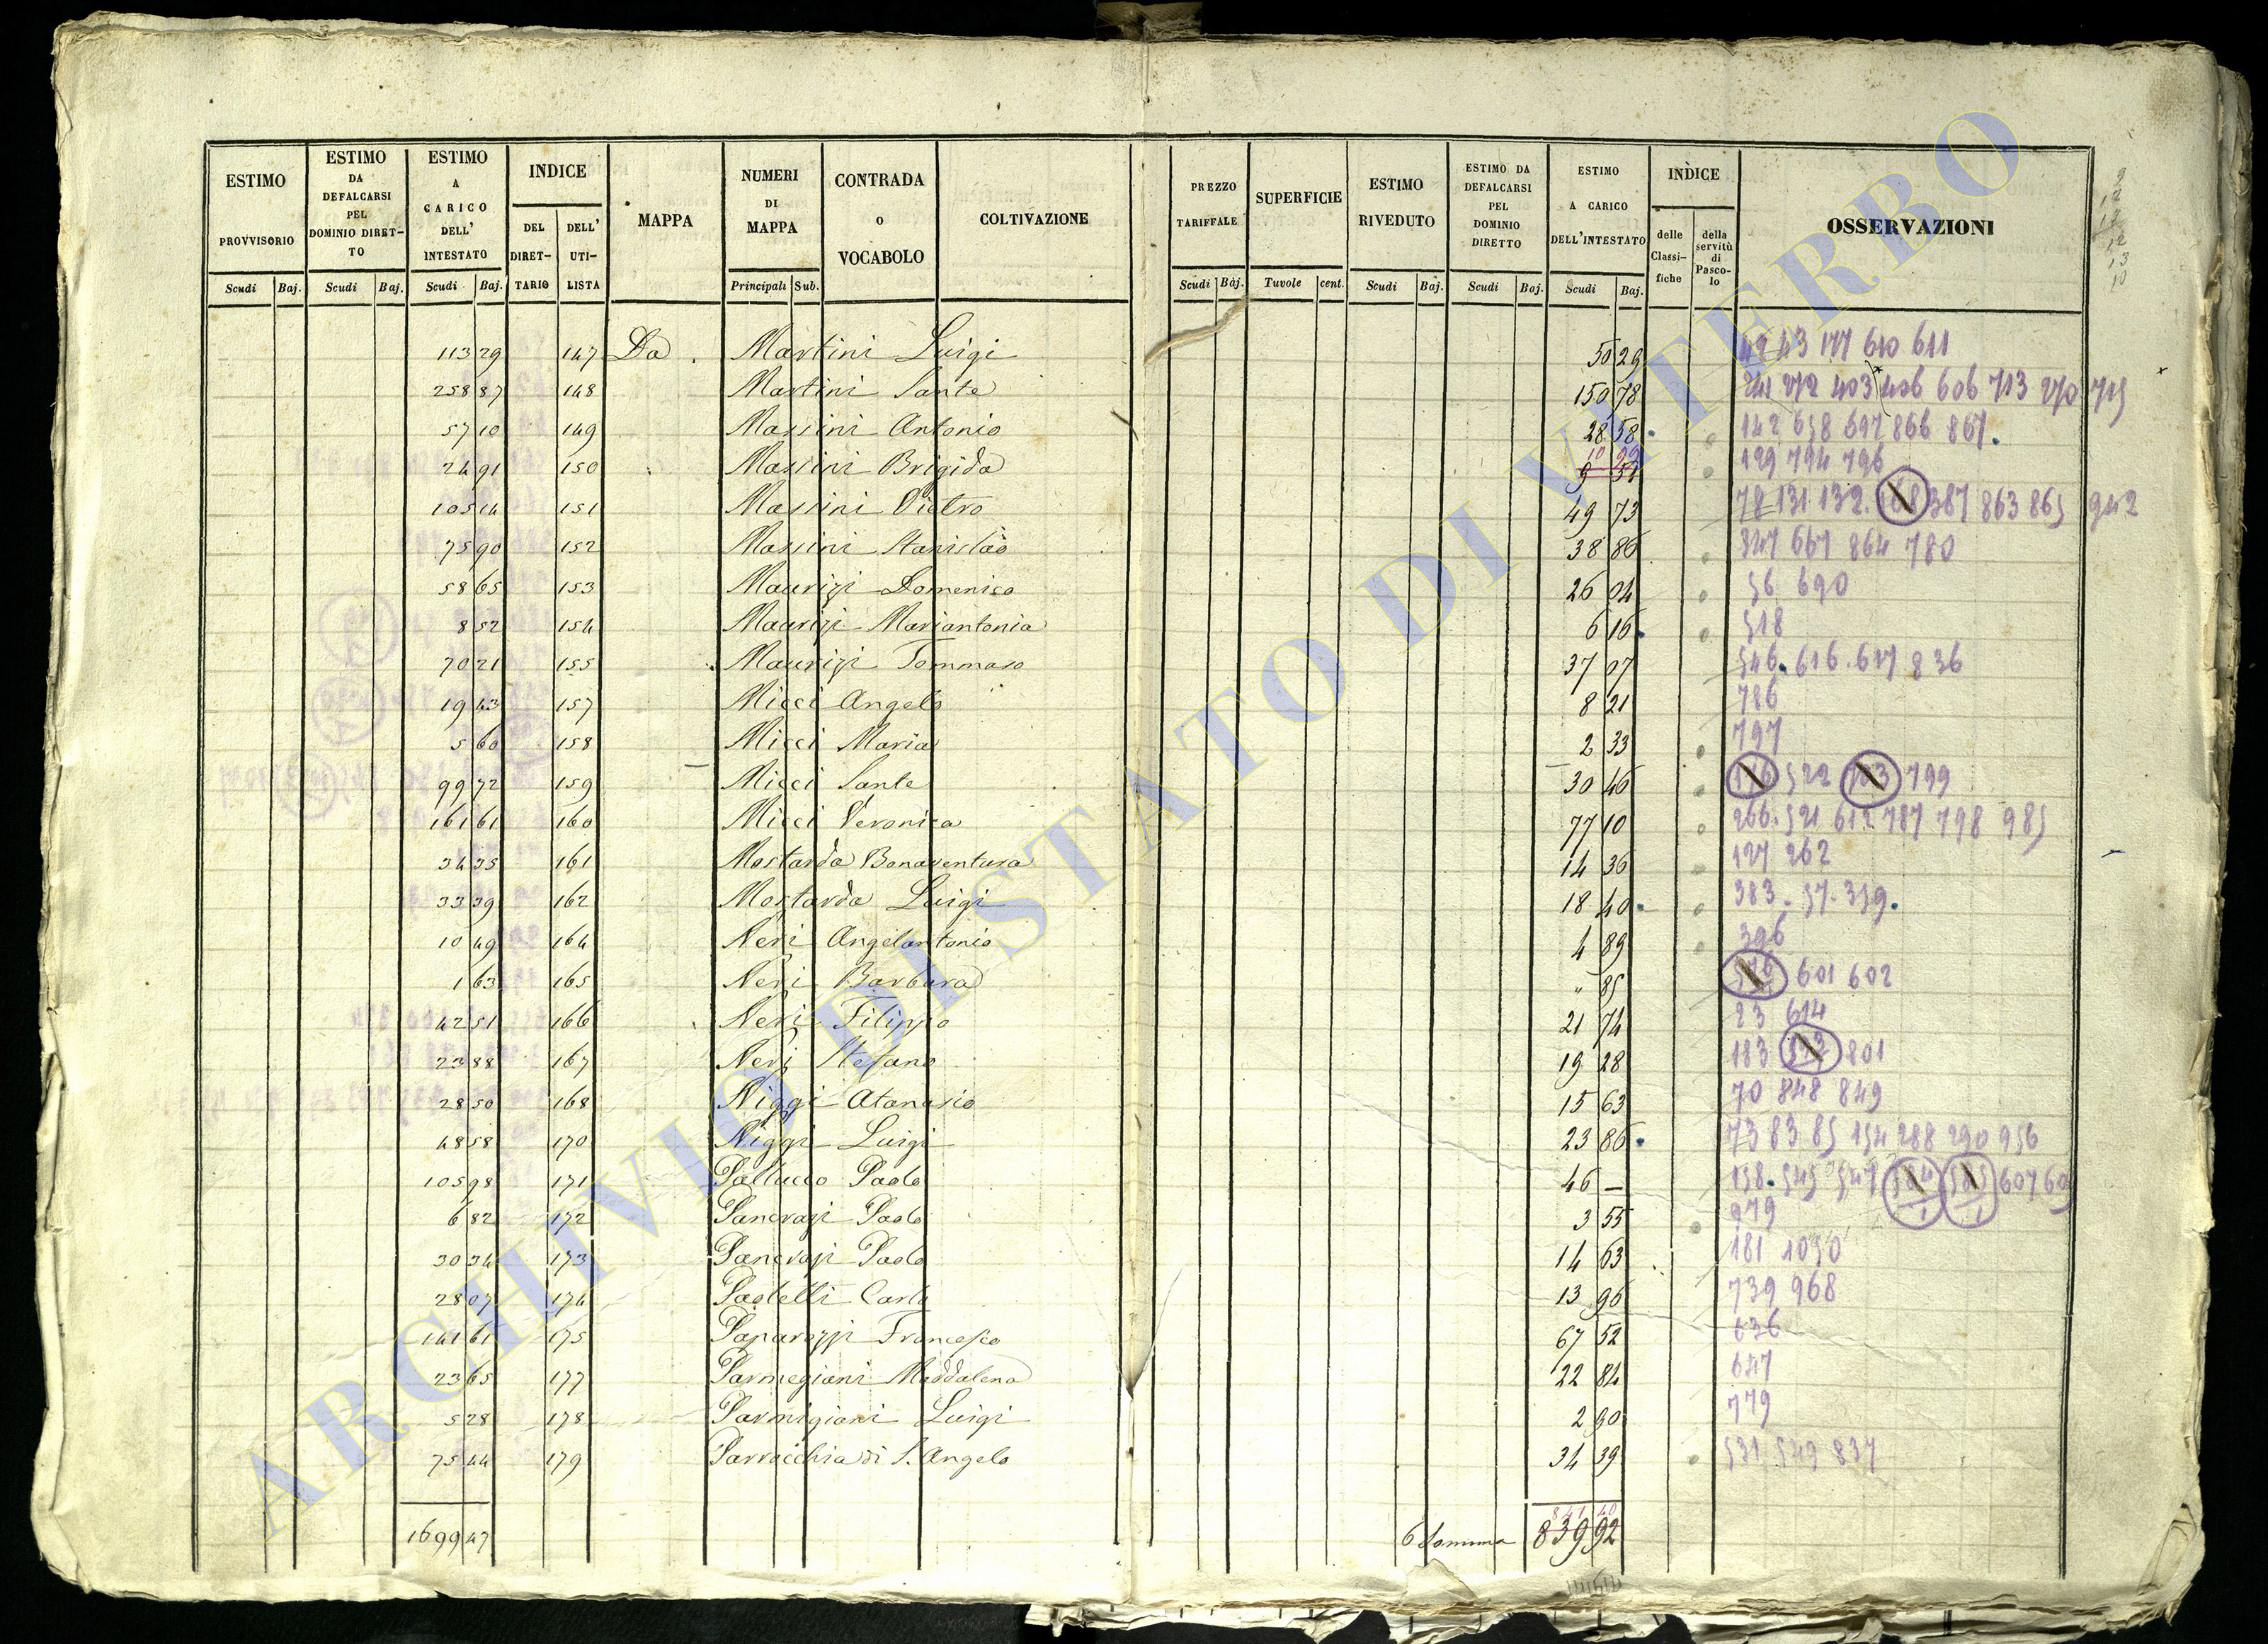 ESTIMO PROVVISORIO | ESTIMO DA DEFALCARSI PEL DOMINIO DIRETTO | ESTIMO A CARICO DELL' INTESTATO | INDICE DEL DIRETTARIO | DELL' UTILISTA | MAPPA | NUMERI DI MAPPA | CONTRADA o VOCABOLO | COLTIVAZIONE | PREZZO TARIFFALE | SUPERFICIE | ESTIMO RIVEDUTO | ESTIMO DA DEFALCARSI PEL DOMINIO DIRETTO | ESTIMO A CARICO DELL'INTESTATO | INDICE delle Classifiche | della servitù di Pascolo | OSSERVAZIONI
Scudi Baj. Scudi Baj. Scudi Baj. Principali Sub. Scudi Baj. Tavole cent. Scudi Baj. Scudi Baj. Scudi Baj.
113 29 147 Da Martini Luigi 50 29 43 177 610 611
258 87 148 Martini Sante 150 78 241 272 403 406 606 713 270 715
57 10 149 Massini Antonio 28 58 142 658 697 866 867
24 91 150 Massini Brigida 10 99 9 51 129 794 796
105 14 151 Massini Pietro 49 73 78 131 132 387 863 865 942
75 90 152 Massini Stanislao 38 86 347 667 864 780
58 65 153 Maurizi Domenico 26 04 56 690
8 52 154 Maurizi Mariantonia 6 16 518
70 21 155 Maurizi Tommaso 37 07 546 616 617 836
19 43 157 Micci Angelo 8 21 786
5 60 158 Micci Maria 2 33 797
99 72 159 Micci Sante 30 46 522 799
161 61 160 Micci Veronica 77 10 266 521 612 787 798 985
34 35 161 Mostarda Bonaventura 14 36 127 262
33 39 162 Mostarda Luigi 18 40 383 57 359
10 49 164 Neri Angelantonio 4 89 396
1 63 165 Neri Barbara " 85 601 602
42 51 166 Neri Filippo 21 74 23 614
23 88 167 Neri Stefano 19 28 183 801
28 50 168 Niggi Atanasio 15 63 70 848 849
48 58 170 Niggi Luigi 23 86 73 83 85 154 288 290 956
105 98 171 Pallucco Paolo 46 — 158 545 547 607 60
6 82 172 Pancrazi Paolo 3 55 979
30 34 173 Pancrazi Paolo 14 63 181 1050
28 07 174 Paolelli Carlo 13 96 739 968
141 61 175 Paparozzi Francesco 67 52 636
23 65 177 Parmegiani Maddalena 22 84 647
5 28 178 Parmigiani Luigi 2 90 779
75 44 179 Parrocchia di S. Angelo 34 39 531 549 837
1699 47 Somma 841 40 839 92
ARCHIVIO DI STATO DI VITERBO